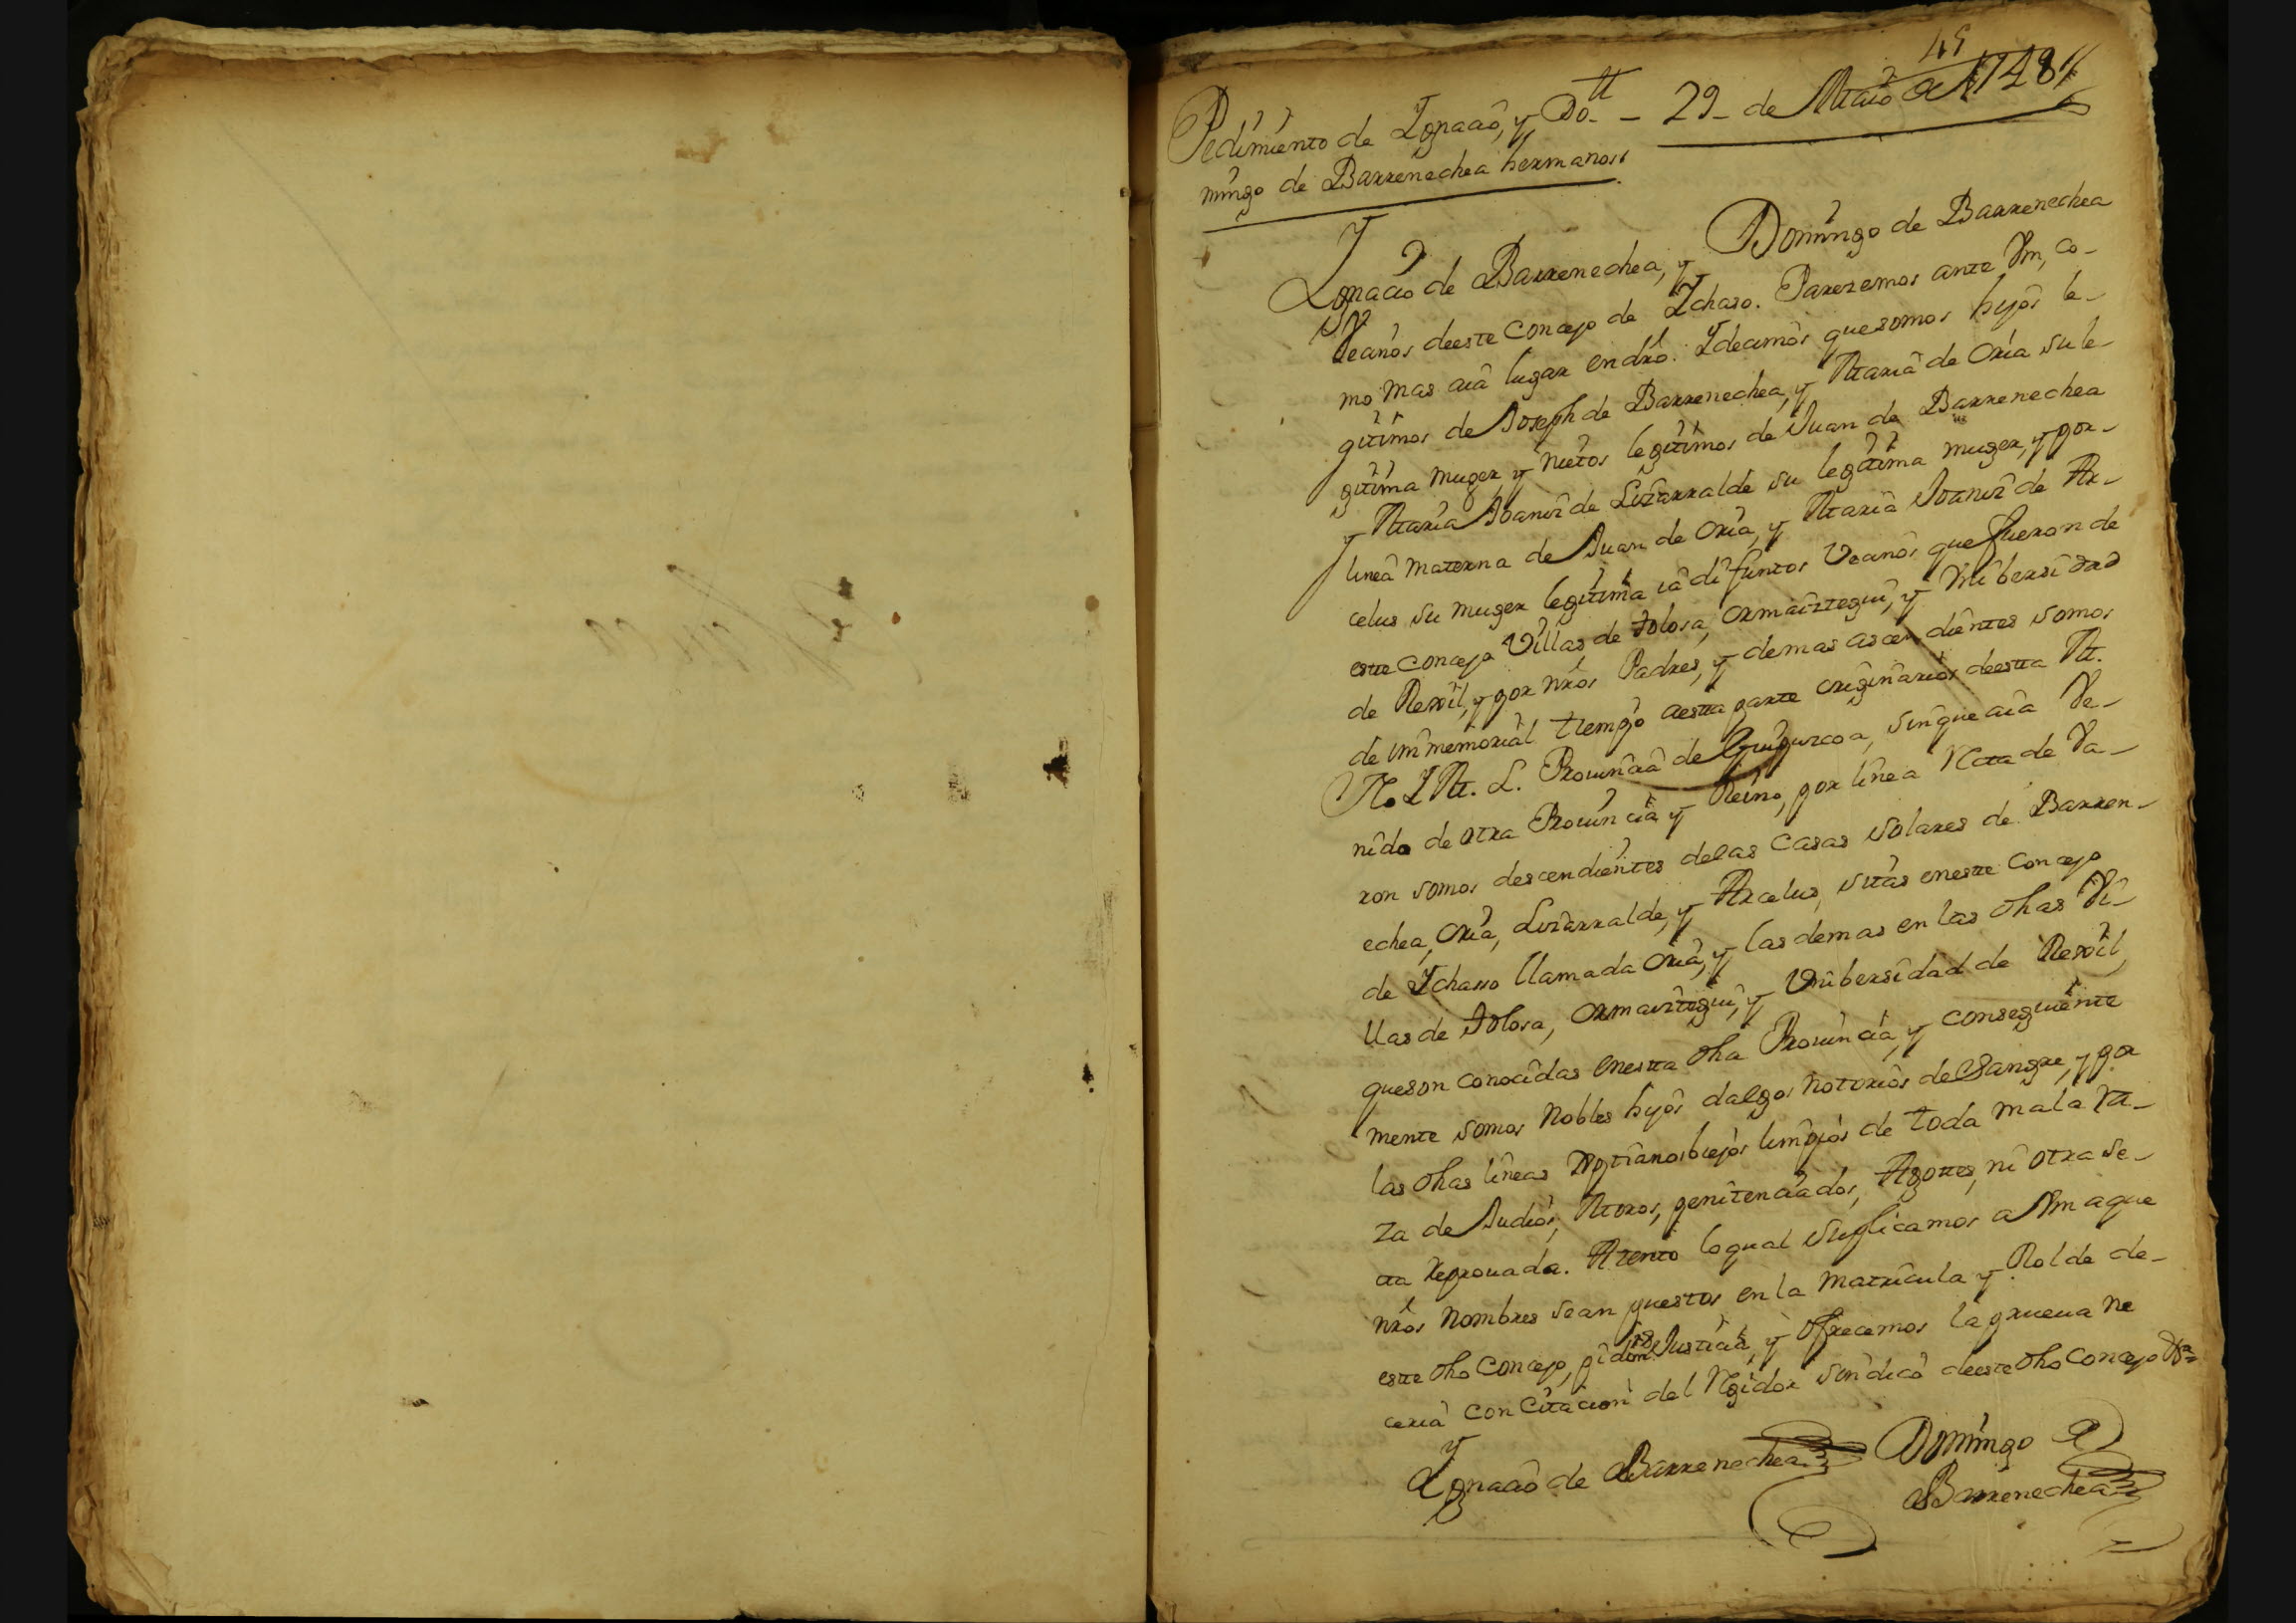 45
Pedimiento de Ygnacio, y Do- - 29- de Maio de 1748
mingo de Barrenechea hermanos
Ygnacio de Barrenechea, y Domingo de Barrenechea
Vecinos deeste Concejo de Ychaso. Parezemos ante Vm, co-
mo mas aia lugar en dro. Y decimos que somos hijos le-
gitimos de Joseph de Barrenechea, y Maria de Oria su le-
gitima muger, y nietos legitimos de Juan de Barrenechea
y Maria Joaniz de Lizarralde su legitima muger, y por
linea materna de Juan de Oria, y Maria Joaniz de Ar-
celus su muger legitima ia difuntos Vecinos que fueron de
este Concejo Villas de Tolosa, Ormaiztegui, y Vnibersidad
de Rexil, y por nros Padres, y demas ascendientes somos
de immemorial tiempo aesta parte originarios deesta M.
N. Y M. L. Prouincia de Guipuzcoa, sin que aia Ve-
nido de otra Prouincia y Reino, por linea Recta de Va-
ron somos descendientes delas Casas Solares de Barren-
echea, Oria, Lizarralde, y Arcelus, sitas eneste Concejo
de Ychasso llamada Oria, y las demas en las dhas Vi-
llas de Tolosa, Ormaiztegui, y Vnibersidad de Rexil,
que son conocidas enesta dha Prouincia, y conseguiente
mente somos Nobles hijos dalgo notorios de Sangre, y por
las dhas lineas Xptianos biejos limpios de toda mala Ra-
za de Judios, Moros, penitenciados, Agotes, ni otra se-
cta Reprouada. Atento loqual Suplicamos a Vm aque
nros Nombres sean puestos en la Matricula y Rolde de-
este dho Concejo, pedimos Justicia, y ofrecemos la prueua ne
ceria con Citacion del Regidor Sindico deeste dho Concejo
Ygnacio de Barrenechea Domingo de
Barrenechea